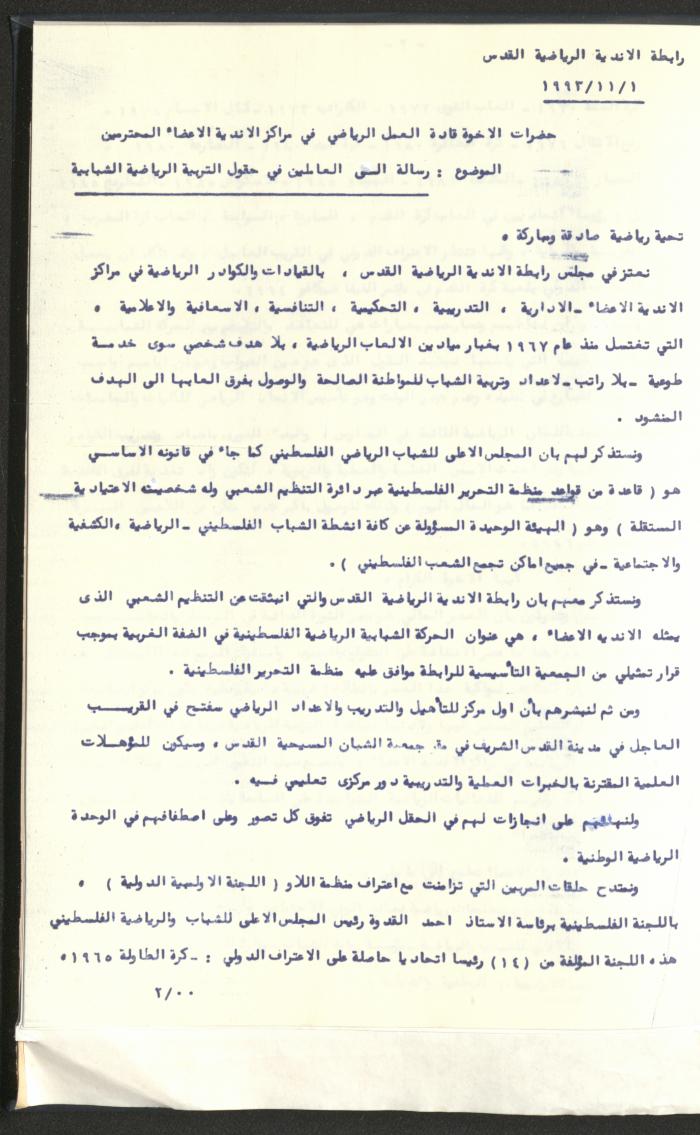 رابطة الاندية الرياضية القدس
١٩٩٣/١١/١
حضرات الاخوة قادة العمل الرياضي في مراكز الاندية الاعضاء المحترمين
الموضوع : رسالة الى العاملين في حقول التربية الرياضية الشبابية
تحية رياضية صادقة ومباركة ،
نعتز في مجلس رابطة الاندية الرياضية القدس ، بالقيادات والكوادر الرياضية في مراكز
الاندية الاعضاء ـ الادارية ، التدريبية ، التحكيمية ، التنافسية ، الاسعافية والاعلامية ،
التي تغتسل منذ عام ١٩٦٧ بغبار ميادين الالعاب الرياضية ، بلا هدف شخصي سوى خدمة
طوعية ـ بلا راتب ـ لاعداد وتربية الشباب للمواطنة الصالحة والوصول بفرق العابها الى الهدف
المنشود .
ونستذكر لهم بان المجلس الاعلى للشباب الرياضي الفلسطيني كما جاء في قانونه الاساسي
هو ( قاعدة من قواعد منظمة التحرير الفلسطينية عبر دائرة التنظيم الشعبي وله شخصيته الاعتبادية
المستقلة ) وهو ( الهيئة الوحيدة المسؤولة عن كافة انشطة الشباب الفلسطيني ـ الرياضية ، الكشفية
والاجتماعية ـ في جميع اماكن تجمع الشعب الفلسطيني ) .
ونستذكر معهم بان رابطة الاندية الرياضية القدس والتي انبثقت عن التنظيم الشعبي الذى
يمثله الاندية الاعضاء ، هي عنوان الحركة الشبابية الرياضية الفلسطينية في الضفة الغربية بموجب
قرار تمثيلي من الجمعية التأسيسية للرابطة موافق عليه منظمة التحرير الفلسطينية .
ومن ثم لنبشرهم بأن اول مركز للتأهيل والتدريب والاعداد الرياضي سفتح في القريب
العاجل في مدينة القدس الشريف في جمعية الشبان المسيحية القدس ، وسيكون للمؤهلات
العلمية المقترنة بالخبرات العملية والتدريبية دور مركزى تعليمي فسيه .
ولنهانهم على انجازات لهم في الحقل الرياضي تفوق كل تصور وعلى اصطفافهم في الوحدة
الرياضية الوطنية .
ونمتدح حلقات المربين التي تزامنت مع اعتراف منظمة اللاو ( اللجنة الاولمبية الدولية ) ،
باللجنة الفلسطينية برئاسة الاستاذ احمد القدوة رئيس المجلس الاعلى للشباب والرياضية الفلسطيني
هذه اللجنة المؤلفة من (١٤) رئيسا اتحاديا حاصلة على الاعتراف الدولي : ـ كرة الطاولة ١٩٦٥،
٢/٠٠